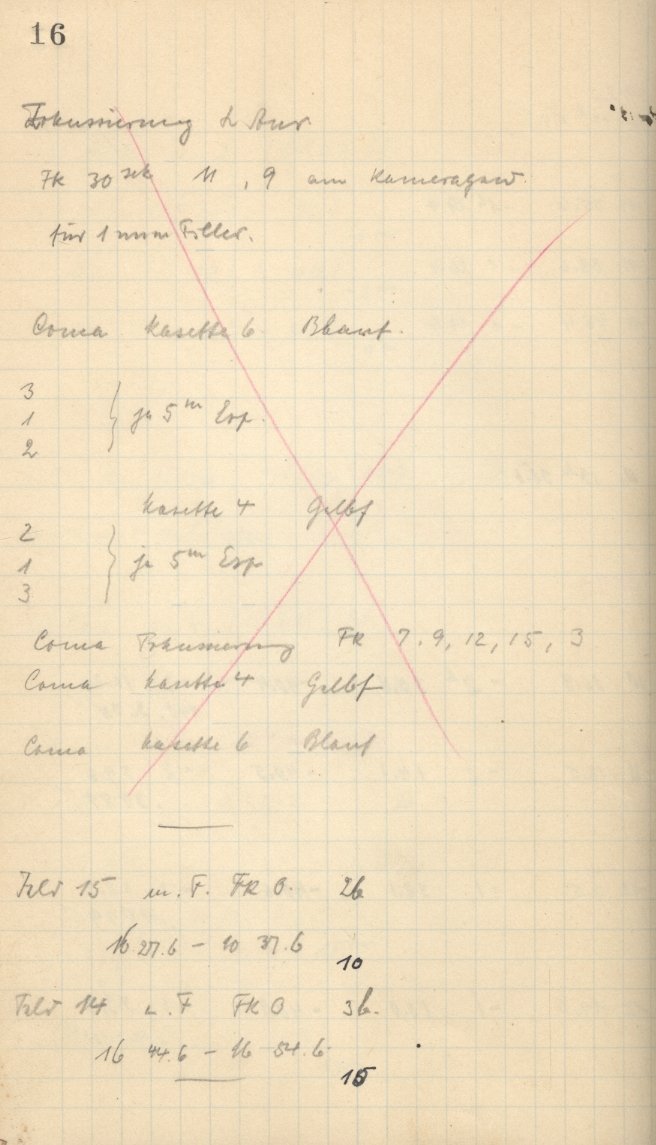 16
Fokussierung α Aur
FK 30 sek 11, 9 am
für 1 mm Filter.
Coma Kasette 6 Blauf.
3
1 } je 5 m Exp.
2
Kasette 4 Gelbf
2
1 } je 5 m Exp
3
Coma Fokussierung FK 7. 9, 12, 15, 3
Coma Kasette 4 Gelbf
Coma Kasette 6 Blauf
Feld 15 m. F. FK 0. 26
16 27.6 – 37.6
10
Feld 14 m. F FK 0 36.
16 44.6 – 16 54.6